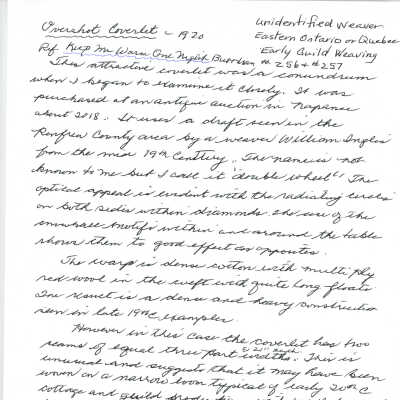 Overshot Coverlet - 1920
Unidentified Weaver
Eastern Ontario or Quebec
Early Guild Weaving
Ref Keep Me Warm One Night Burnham # 256 + # 257
This attractive coverlet was a conundrum
when I began to examine it closely. It was
purchased at an antique auction in Napanee
about 2018. It uses a draft seen in the
Renfrew County area by a weaver William Inglis
from the mid 19th Century. The name is not
known to me but I call it "double wheel". The
optical appeal is evident with the radiating circles
on both sides within diamonds. The use of the
motifs within and around the table
shows them to good effect as opposites.
The warp is dense cotton with multi ply
red wool in the weft with quite long floats
The result is a dense and heavy construction
seen in late 19thC examples.
However in this case the coverlet has two
seams of equal three part widths. This is
unusual and suggests that it may have been
woven on a narrow loom typical of early 20th C
cottage and guild